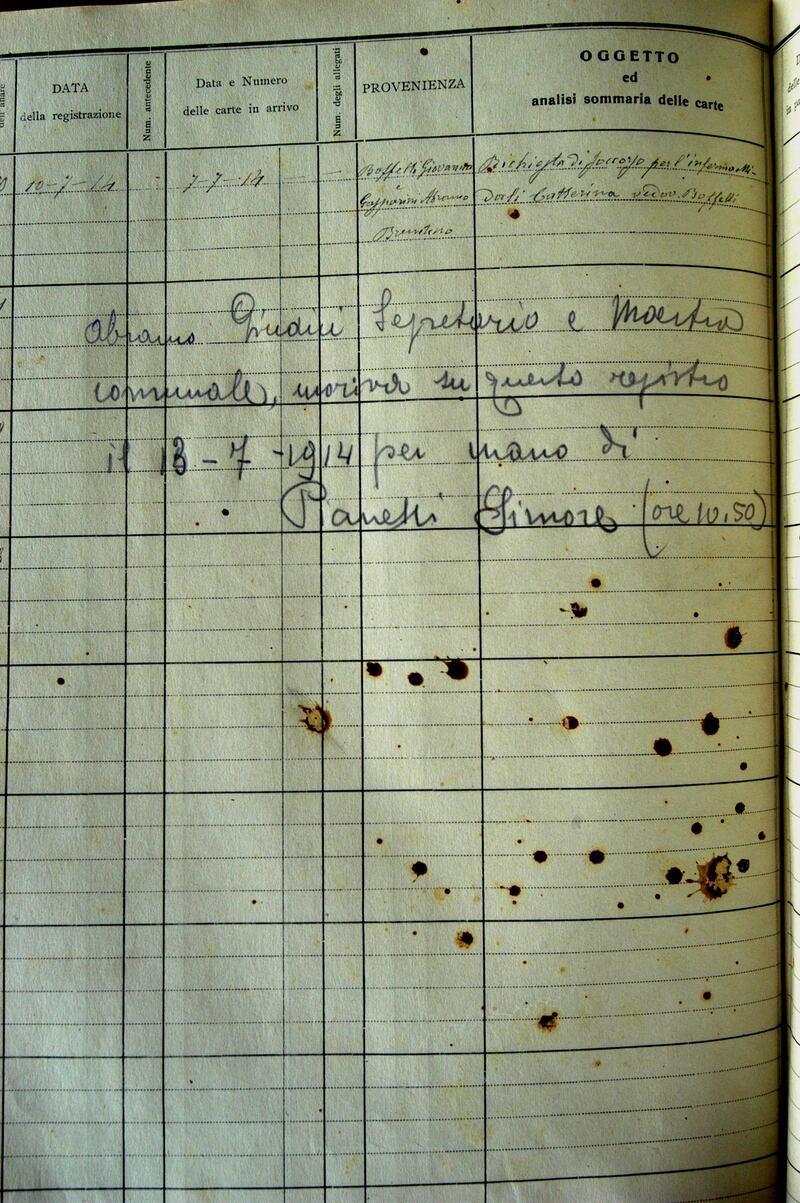 DATA
della registrazione
Num. antecedente
Data e Numero
delle carte in arrivo
Num. degli allegati
PROVENIENZA
OGGETTO
ed
analisi sommaria delle carte
10-7-14
7-7-14
Boffelli Giovanni
e
Gasparini Abramo
Brembano
Richiesta di soccorso per l'inferma Mi-
dali Catterina vedov. Boffelli
Abramo Giudici Segretario e Maestro
comunale, moriva su questo registro
il 13-7-1914 per mano di
Pianetti Simone (ore 10,50)